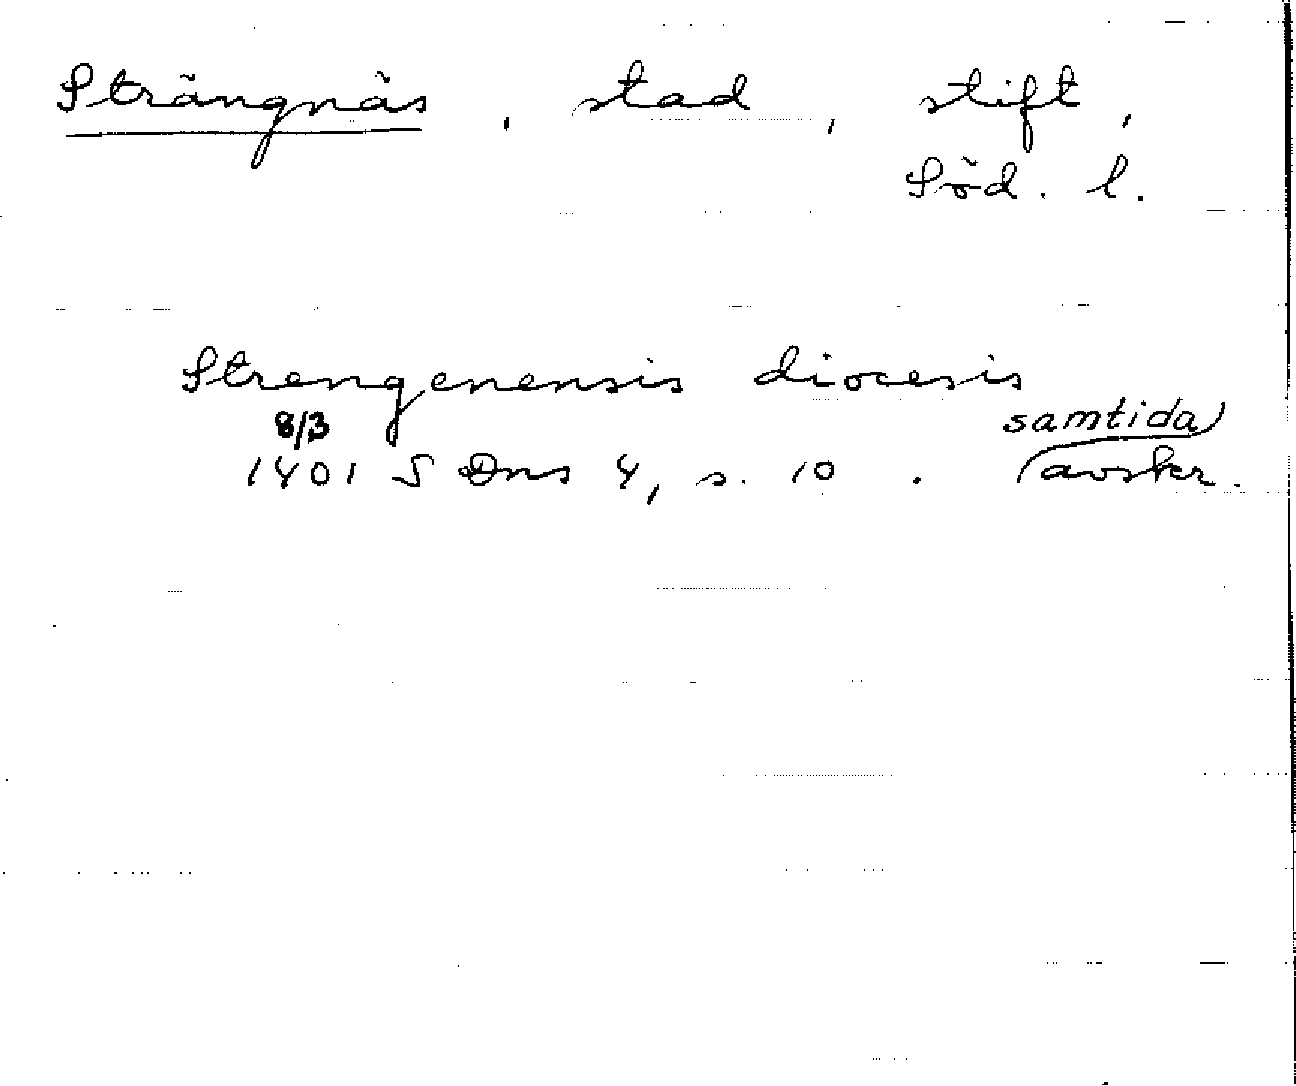 Strängnäs, stad, stift,
Söd. l.
Strengenensis diocesis
8/3 samtida
1401 S Dns 4, s. 10. avskr.